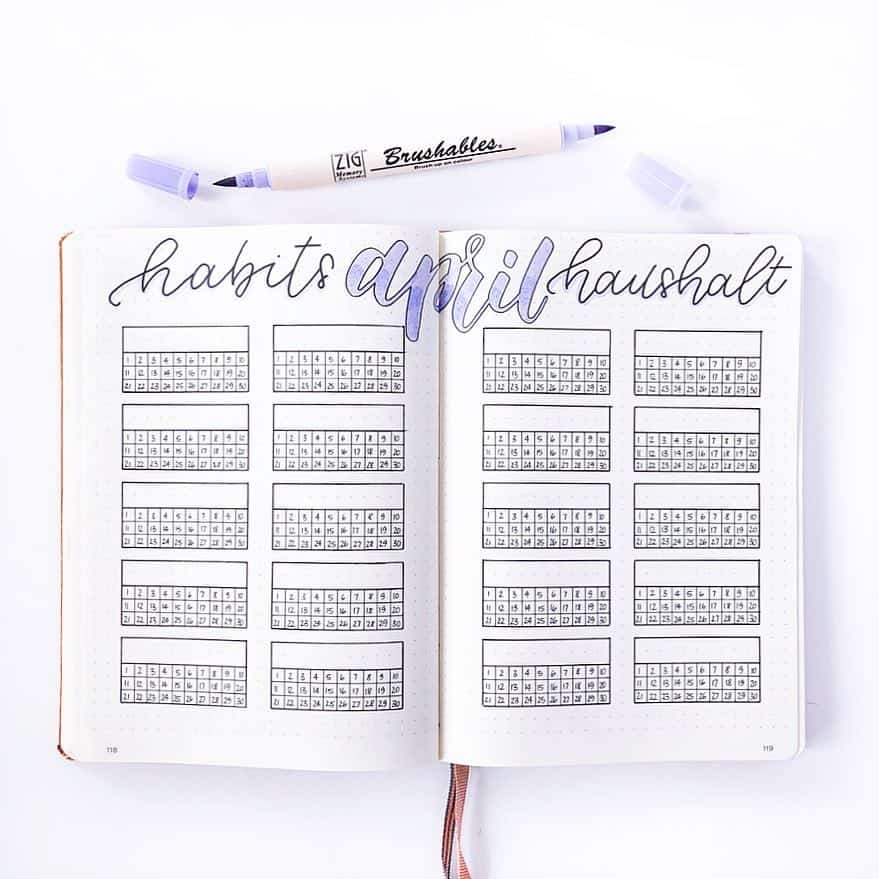 ZIG
Memory
System
Brushables.
Brush up on colour
habits april haushalt
1 2 3 4 5 6 7 8 9 10
11 12 13 14 15 16 17 18 19 20
21 22 23 24 25 26 27 28 29 30
1 2 3 4 5 6 7 8 9 10
11 12 13 14 15 16 17 18 19 20
21 22 23 24 25 26 27 28 29 30
1 2 3 4 5 6 7 8 9 10
11 12 13 14 15 16 17 18 19 20
21 22 23 24 25 26 27 28 29 30
1 2 3 4 5 6 7 8 9 10
11 12 13 14 15 16 17 18 19 20
21 22 23 24 25 26 27 28 29 30
1 2 3 4 5 6 7 8 9 10
11 12 13 14 15 16 17 18 19 20
21 22 23 24 25 26 27 28 29 30
1 2 3 4 5 6 7 8 9 10
11 12 13 14 15 16 17 18 19 20
21 22 23 24 25 26 27 28 29 30
1 2 3 4 5 6 7 8 9 10
11 12 13 14 15 16 17 18 19 20
21 22 23 24 25 26 27 28 29 30
1 2 3 4 5 6 7 8 9 10
11 12 13 14 15 16 17 18 19 20
21 22 23 24 25 26 27 28 29 30
1 2 3 4 5 6 7 8 9 10
11 12 13 14 15 16 17 18 19 20
21 22 23 24 25 26 27 28 29 30
1 2 3 4 5 6 7 8 9 10
11 12 13 14 15 16 17 18 19 20
21 22 23 24 25 26 27 28 29 30
118
1 2 3 4 5 6 7 8 9 10
11 12 13 14 15 16 17 18 19 20
21 22 23 24 25 26 27 28 29 30
1 2 3 4 5 6 7 8 9 10
11 12 13 14 15 16 17 18 19 20
21 22 23 24 25 26 27 28 29 30
1 2 3 4 5 6 7 8 9 10
11 12 13 14 15 16 17 18 19 20
21 22 23 24 25 26 27 28 29 30
1 2 3 4 5 6 7 8 9 10
11 12 13 14 15 16 17 18 19 20
21 22 23 24 25 26 27 28 29 30
1 2 3 4 5 6 7 8 9 10
11 12 13 14 15 16 17 18 19 20
21 22 23 24 25 26 27 28 29 30
1 2 3 4 5 6 7 8 9 10
11 12 13 14 15 16 17 18 19 20
21 22 23 24 25 26 27 28 29 30
1 2 3 4 5 6 7 8 9 10
11 12 13 14 15 16 17 18 19 20
21 22 23 24 25 26 27 28 29 30
1 2 3 4 5 6 7 8 9 10
11 12 13 14 15 16 17 18 19 20
21 22 23 24 25 26 27 28 29 30
1 2 3 4 5 6 7 8 9 10
11 12 13 14 15 16 17 18 19 20
21 22 23 24 25 26 27 28 29 30
1 2 3 4 5 6 7 8 9 10
11 12 13 14 15 16 17 18 19 20
21 22 23 24 25 26 27 28 29 30
119